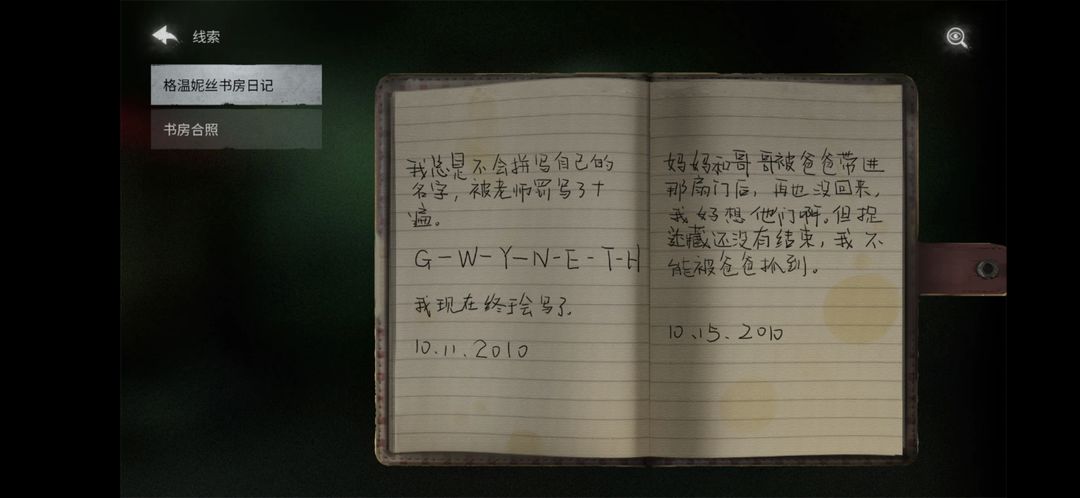 线索
格温妮丝书房日记
书房合照
我总是不会拼写自己的
名字，被老师罚写了十
遍。
G-W-Y-N-E-T-H
我现在终于会写了.
10.11.2010
妈妈和哥哥被爸爸带进
那扇门后，再也没回来，
我好想他们啊。但捉
迷藏还没有结束，我不
能被爸爸抓到。
10.15.2010